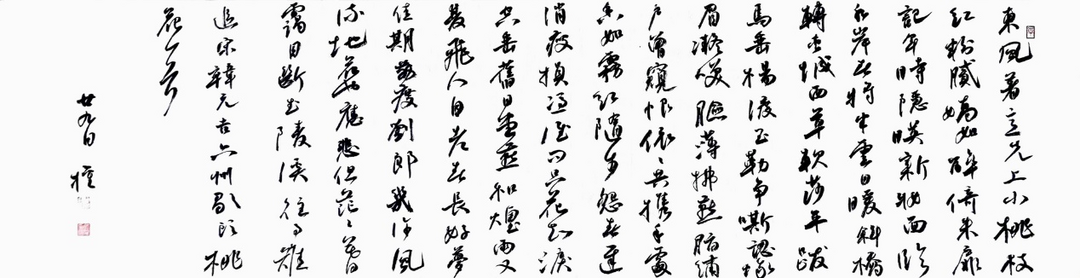 東風著意先上小桃枝
红粉腻嬌如醉倚朱扉
記年時隐映新妝面临
水岸春将半雲日暖斜橋
轉夹城西草軟莎平跋
馬垂楊渡玉勒争嘶認蛾
眉凝笑臉薄拂燕脂绣
户曾窺恨依〻共携手處
香如霧红随步怨春遲
消瘦損凭誰问只花知淚
空垂舊日堂前燕和烟雨又
雙飛人自老春長好夢
佳期前度劉郎幾许風
流地花也應悲但茫〻暮
靄目断武陵溪往事難
追宋韓元吉六州歌頭桃
花
廿九日